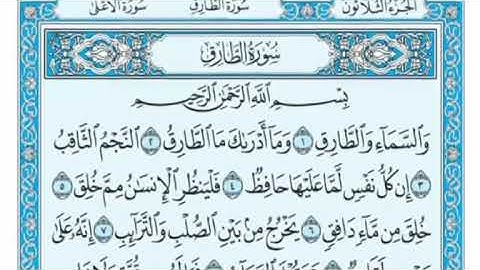 الجزء الثلاثون
سورة الطارق
سورة الأعلى
سُورَةُ الطَّارِقِ
بِسْمِ اللَّهِ الرَّحْمَٰنِ الرَّحِيمِ
وَالسَّمَاءِ وَالطَّارِقِ ١ وَمَا أَدْرَىٰكَ مَا الطَّارِقُ ٢ النَّجْمُ الثَّاقِبُ
٣ إِن كُلُّ نَفْسٍ لَّمَّا عَلَيْهَا حَافِظٌ ٤ فَلْيَنظُرِ الْإِنسَٰنُ مِمَّ خُلِقَ ٥
خُلِقَ مِن مَّاءٍ دَافِقٍ ٦ يَخْرُجُ مِن بَيْنِ الصُّلْبِ وَالتَّرَائِبِ ٧ إِنَّهُ عَلَىٰ